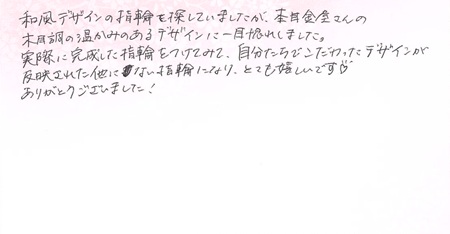 和風デザインの指輪を探していましたが、杢目金屋さんの
木目調の温かみのあるデザインに一目惚れしました。
実際に完成した指輪をつけてみて、自分たちでこだわったデザインが
反映された他にない指輪になり、とても嬉しいです♡
ありがとうございました！